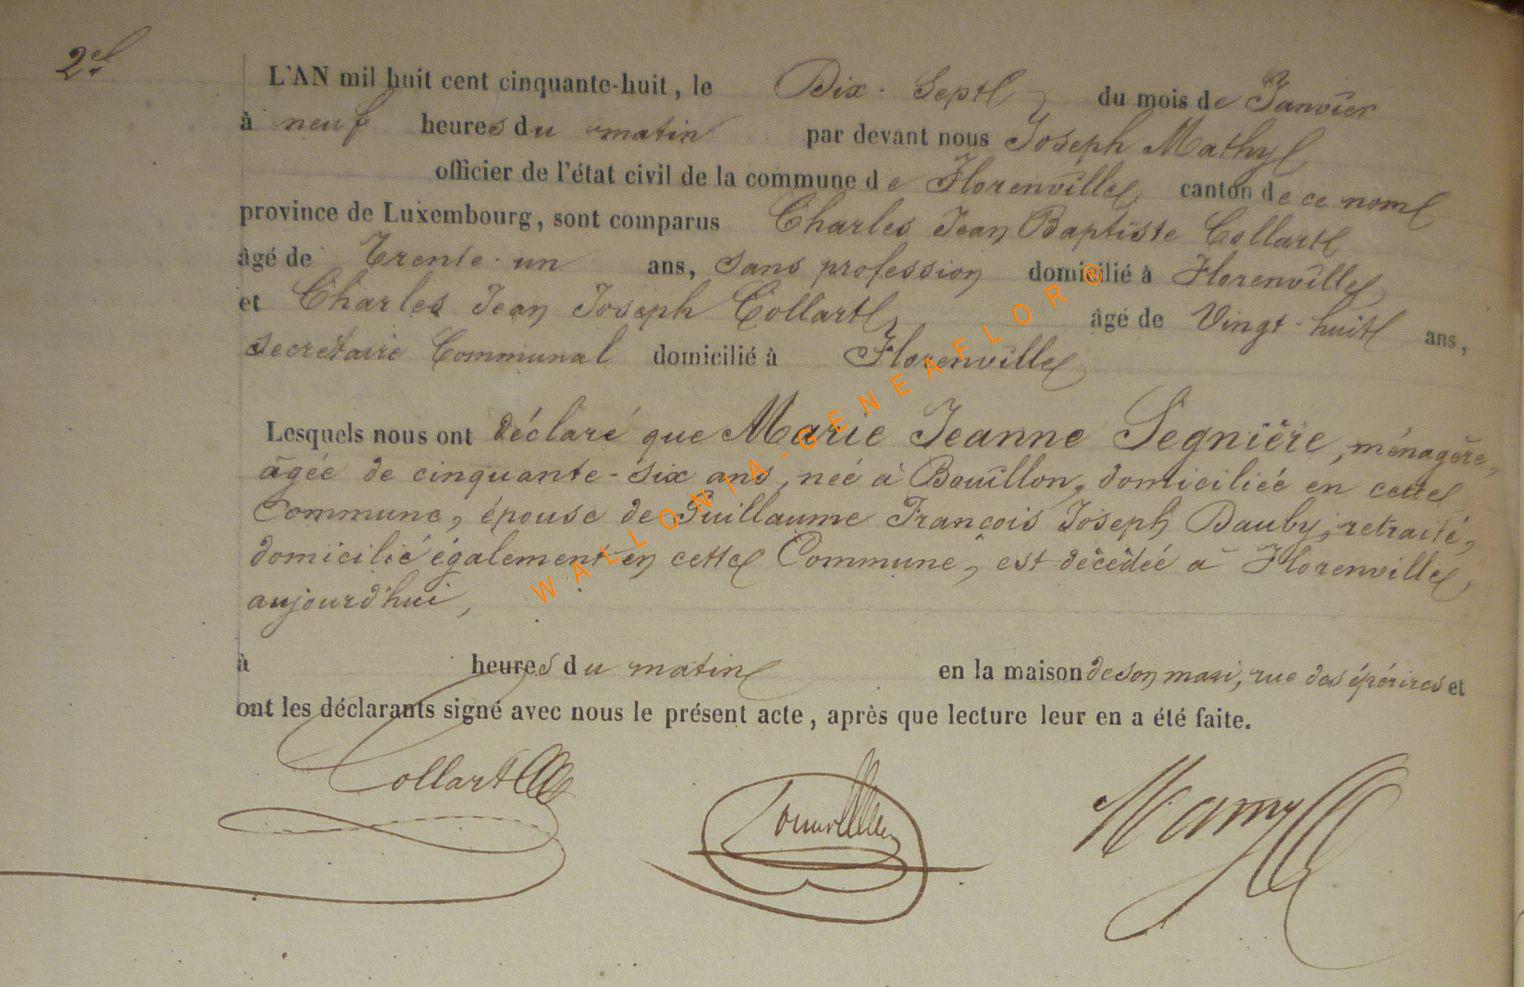 2e
L'AN mil huit cent cinquante-huit, le Dix-Sept du mois de Janvier
à neuf heures du matin par devant nous Joseph Mathy
officier de l'état civil de la commune de Florenville canton de ce nom
province de Luxembourg, sont comparus Charles Jean Baptiste Collart
âgé de Trente-un ans, sans profession domicilié à Florenville
et Charles Jean Joseph Collart, âgé de Vingt-huit ans,
secretaire Communal domicilié à Florenville
Lesquels nous ont déclaré que Marie Jeanne Segnière, ménagère,
âgée de cinquante-six ans, neé à Bouillon, domiciliée en cette
Commune, épouse de Guillaume François Joseph Dauby, retraité,
domicilié également en cette Commune, est décédée à Florenville,
aujourd'hui,
à heures du matin en la maison de son mari, rue des épérires et
ont les déclarants signé avec nous le présent acte, après que lecture leur en a été faite.
Collart
WALLONIA-GENEAFLORE